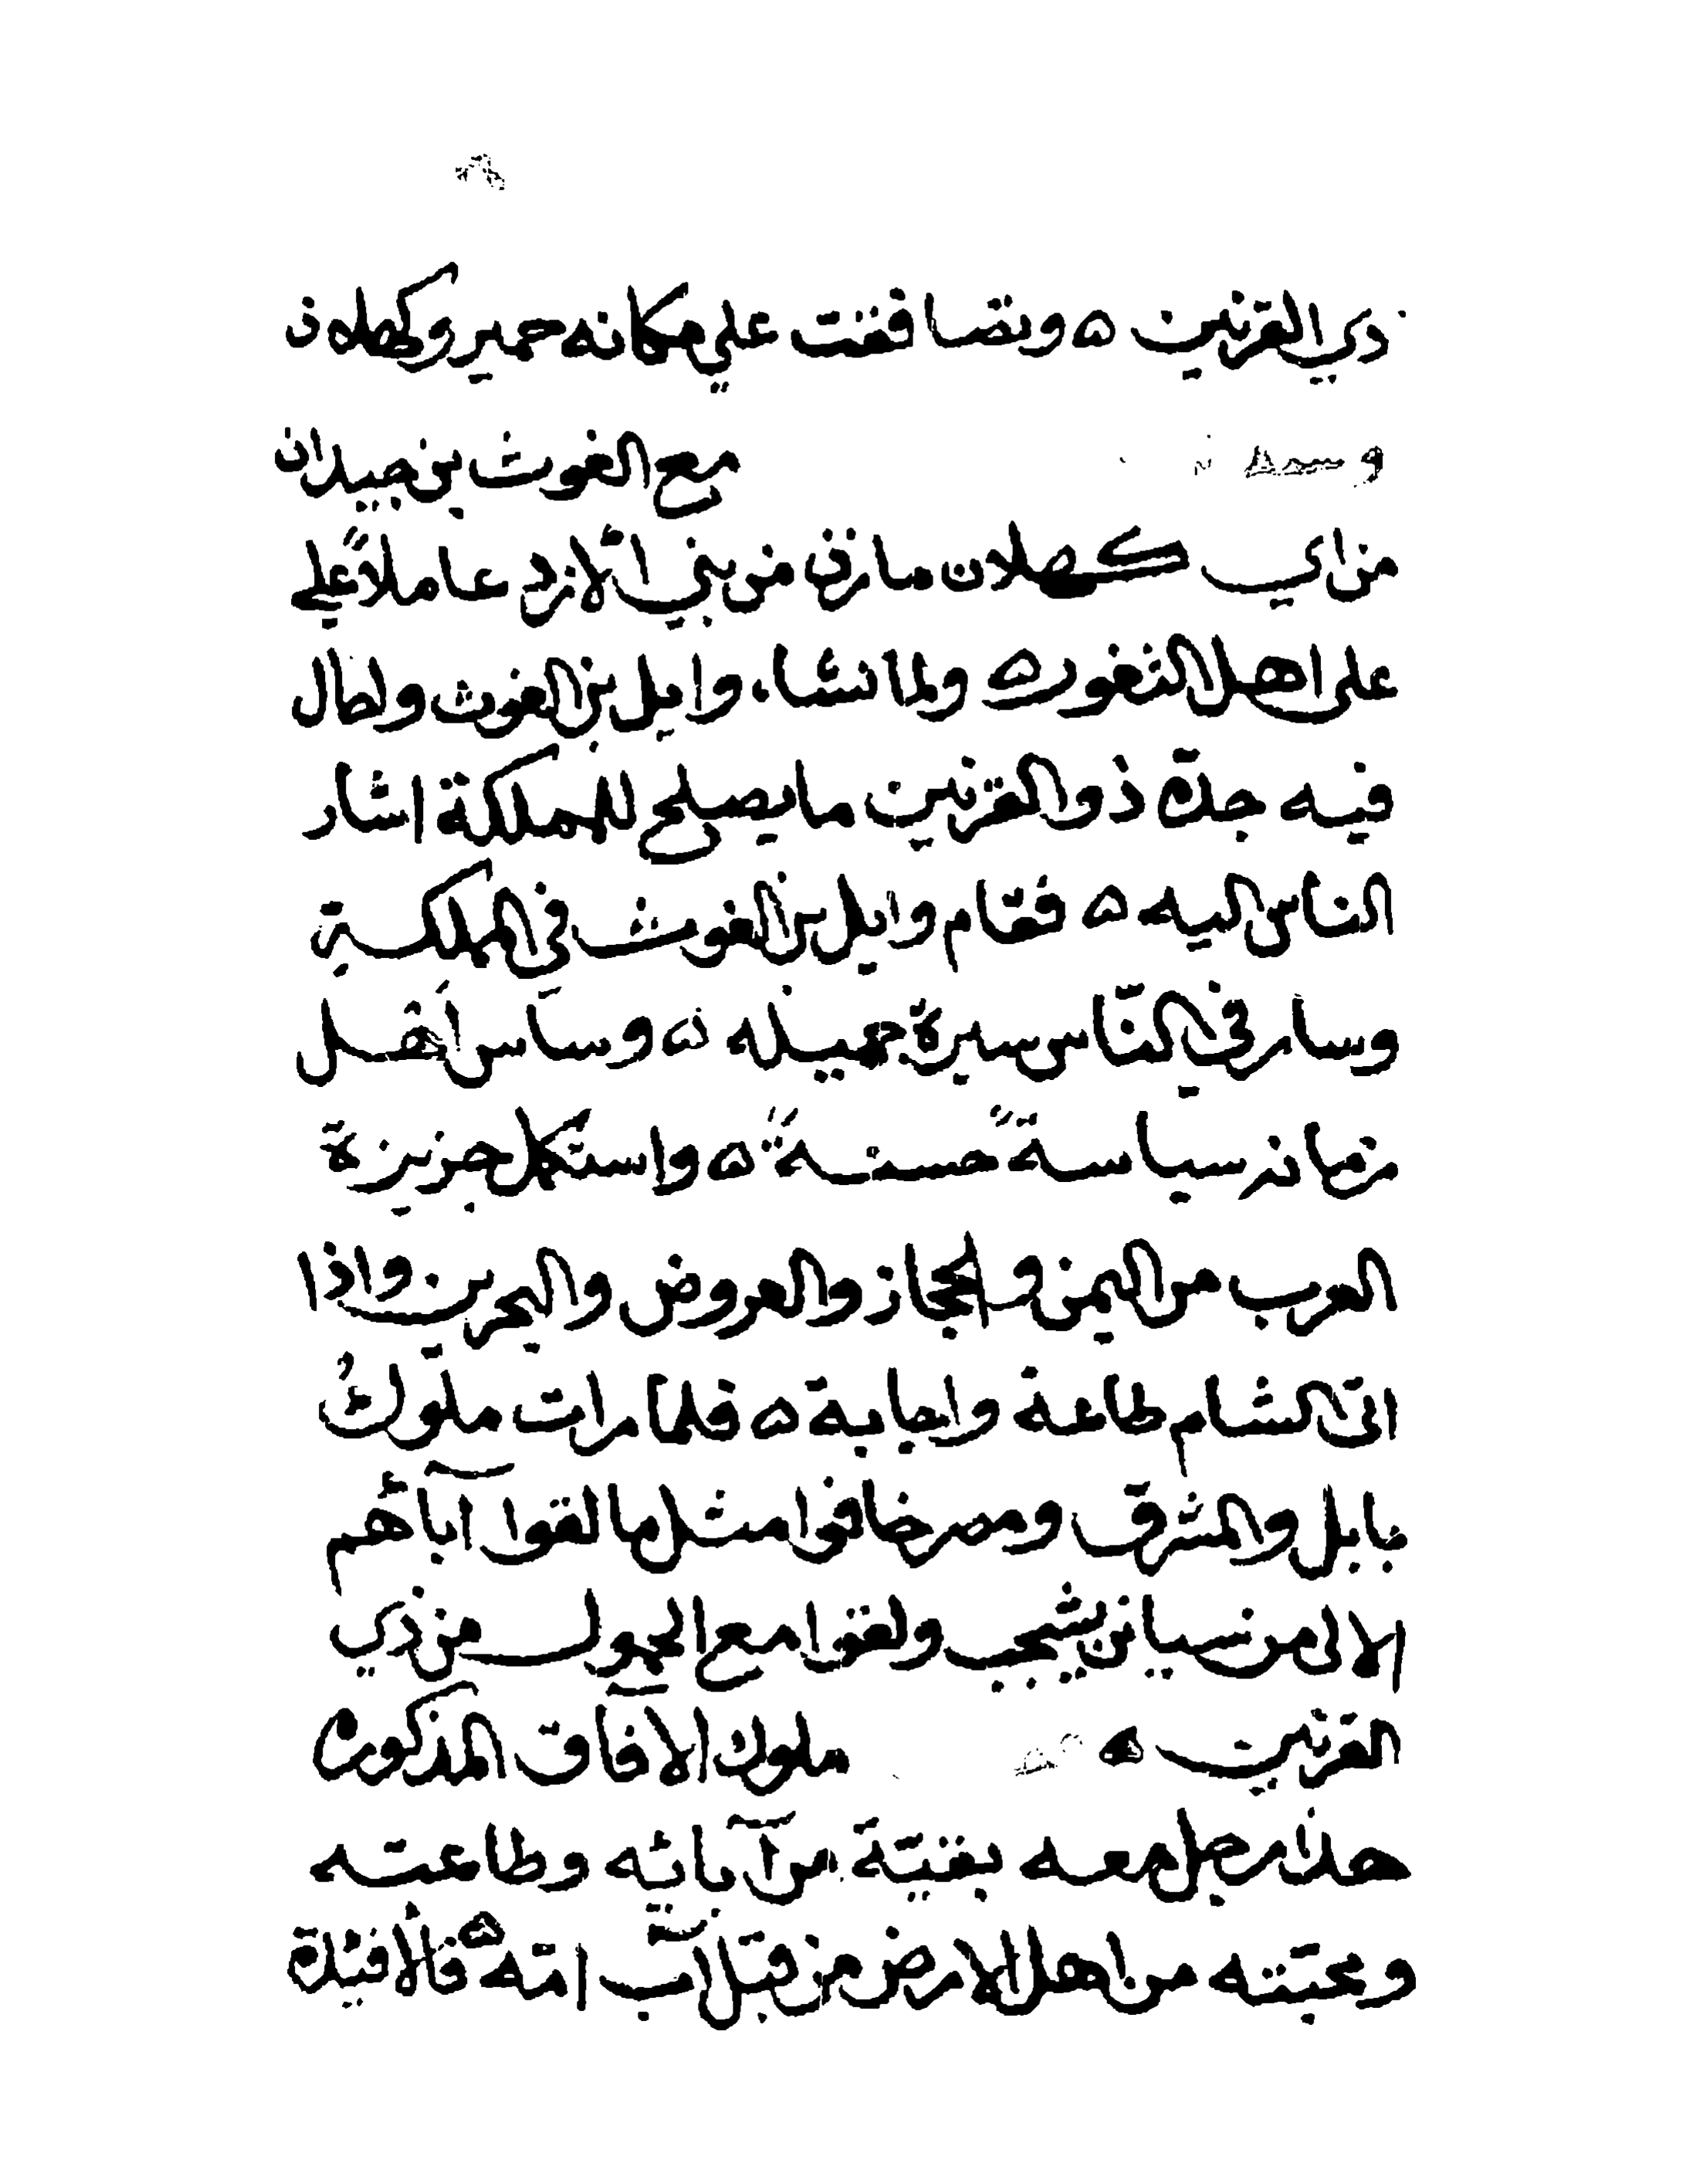 ذي القرنين ٥ وتصافقت علي مكانه حمير وكهلان
مع الغوث بن جيدان
من اي كهلان مازن من بني الازد عاملاً علي
على اهل الثغور ٥ ولما نشا، وايل بن الغوث وطال
فيه جدة ذو القرنين ما يصلح للمملكة اشار
الناس اليه ٥ فقام وايل بن الغوث في المملكة
وسار في الناس سيرة جميله ٥ وساس اهل
زمانه سياسةً حسنةً ٥ واستكل جزيرة
العرب من اليمن والحجاز والعروض والبحرين واذا
اتى الشام طاعة واجابة ٥ فلما رات ملوك
بابل والمشرق ومصر خافوا مثل ما لقوا آباؤهم
الاولى من سبا بن يشجب ولقوا مع الجهول من ذي
القرنين ٥ ملوك الافاق المذكورة
هذا رجل معه بقيّة من آبائه وطاعته
ومحبّته من اهل الارض من قبل اب امّه ٥ فالا فئدة